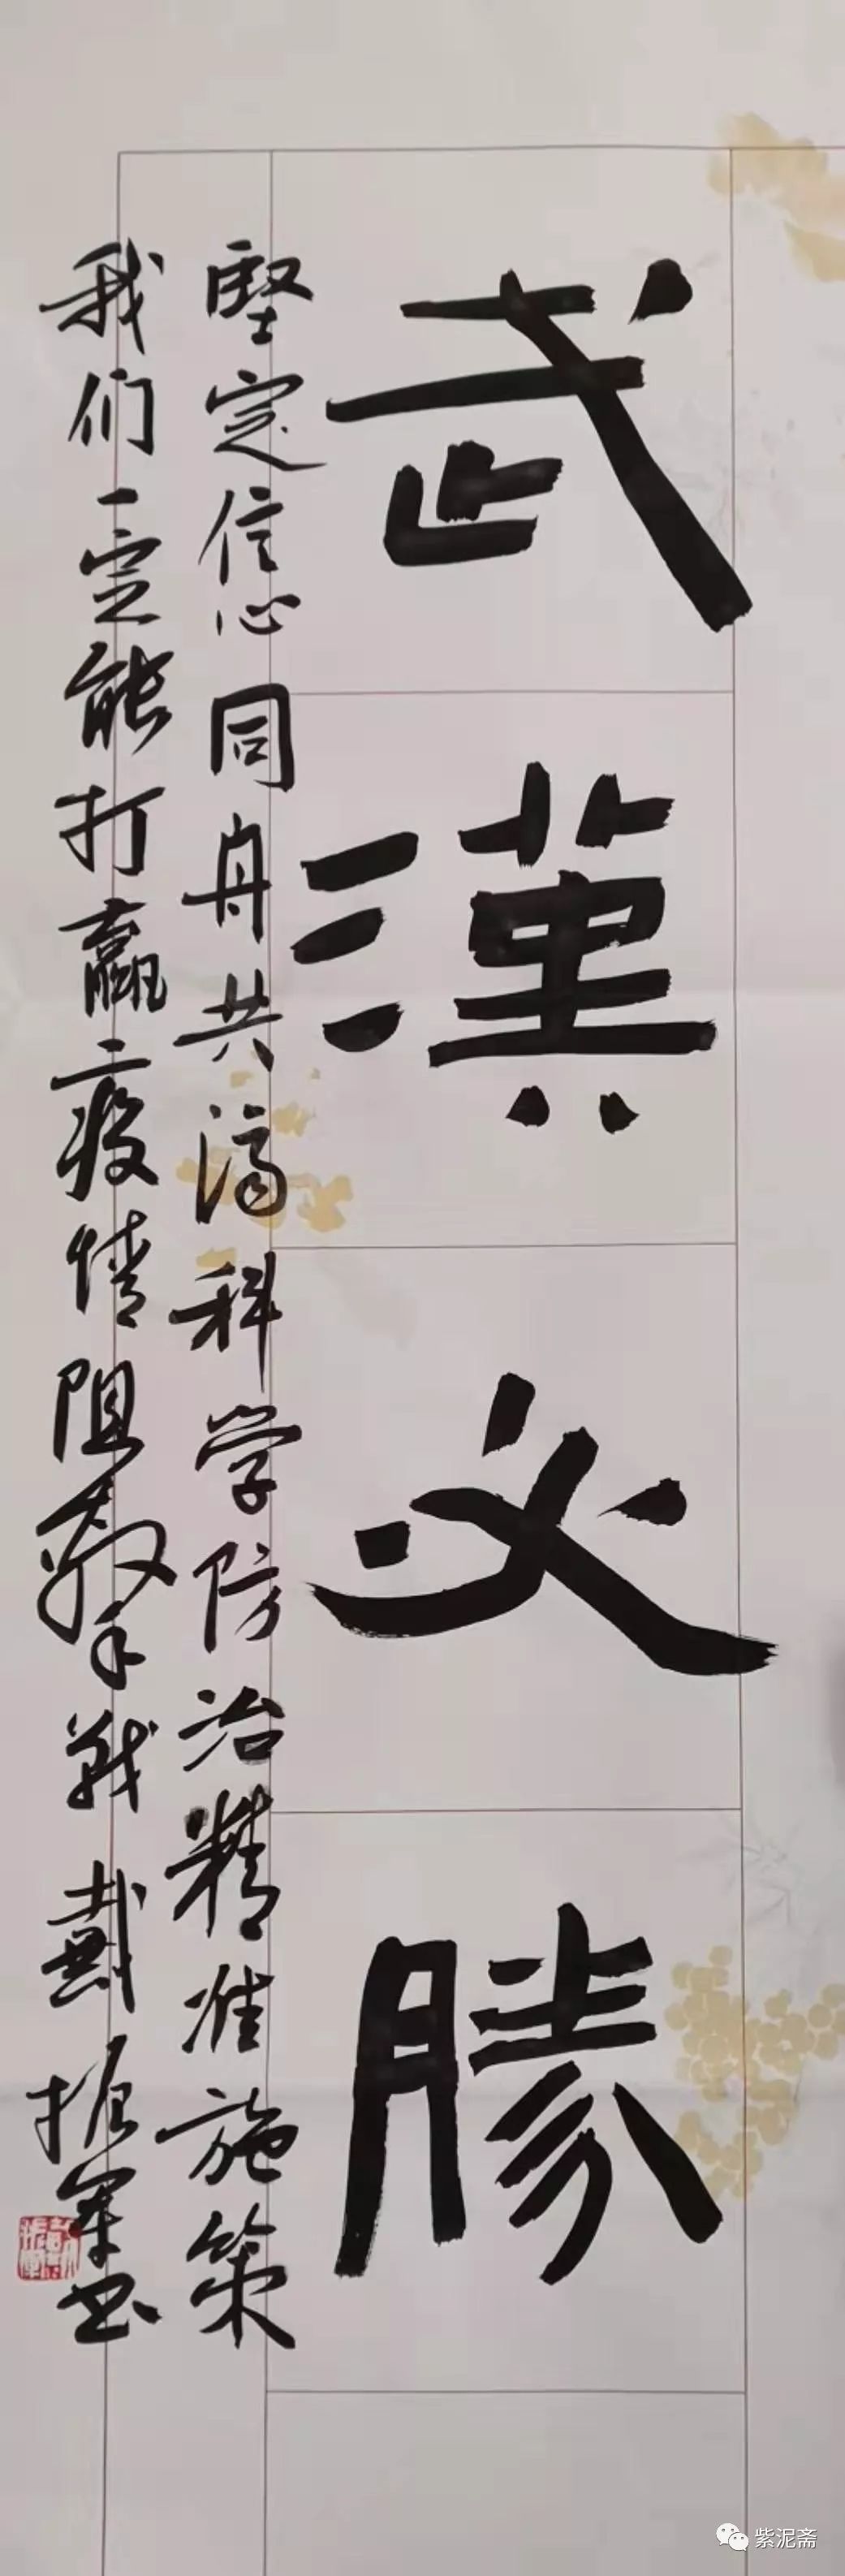 武漢必勝
堅定信心同舟共濟科学防治精准施策
我们一定能打贏疫情阻擊战戴振军书
紫泥斋